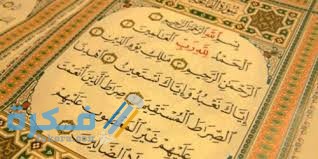 بِسْمِ اللَّهِ الرَّحْمَٰنِ الرَّحِيمِ
الْحَمْدُ لِلَّهِ رَبِّ الْعَالَمِينَ
الرَّحْمَٰنِ الرَّحِيمِ مَالِكِ يَوْمِ الدِّينِ
إِيَّاكَ نَعْبُدُ وَإِيَّاكَ نَسْتَعِينُ اهْدِنَا
الصِّرَاطَ الْمُسْتَقِيمَ صِرَاطَ الَّذِينَ أَنْعَمْتَ
عَلَيْهِمْ غَيْرِ الْمَغْضُوبِ عَلَيْهِمْ
وَلَا الضَّالِّينَ
فكرة